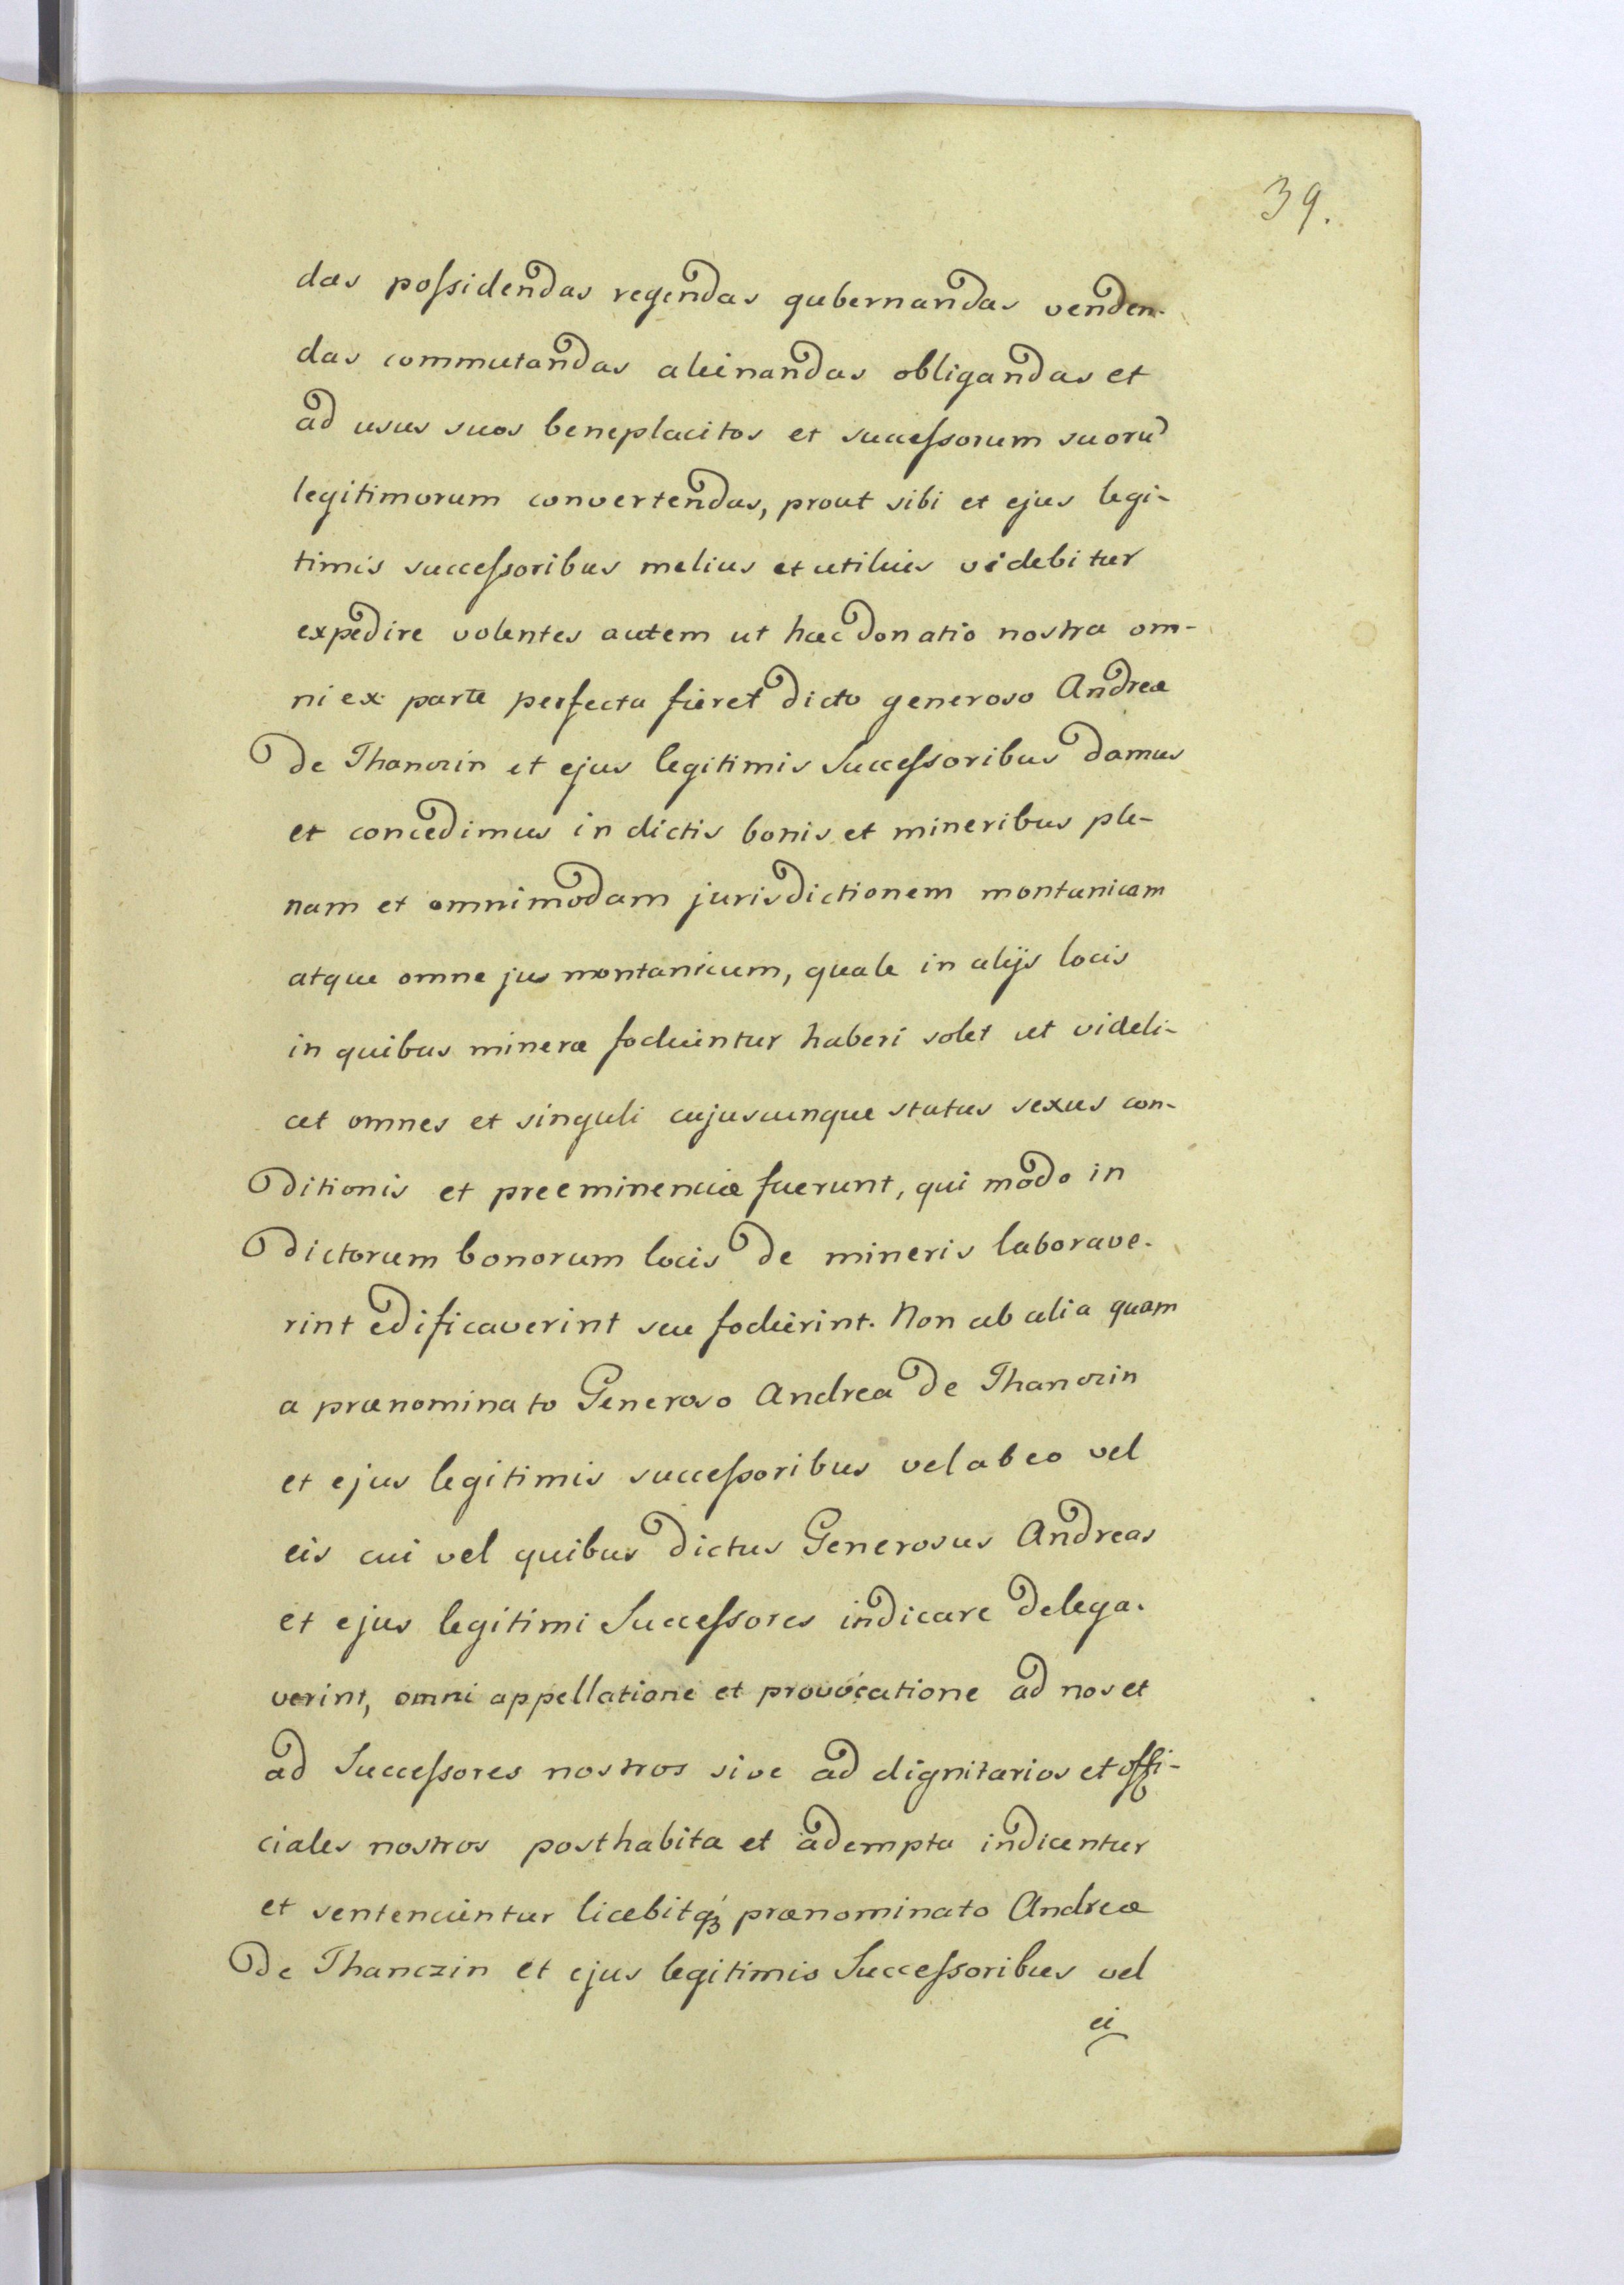 39.
das poſsidendas regendas gubernandas venden-
das commutandas alienandas obligandas et
ad usus suos beneplacitos et succeſsorum suorū
legitimorum convertendas, prout sibi et ejus legi-
timis succeſsoribus melius et utilius videbitur
expedire volentes autem ut hæc donatio nostra om-
ni ex parte perfecta fieret dicto generoso Andreæ
de Thanczin et ejus legitimis Succeſsoribus damus
et concedimus in dictis bonis et mineribus ple-
nam et omnimodam jurisdictionem montanicam
atque omne jus montanicum, quale in alijs locis
in quibus mineræ fodiuntur haberi solet ut videli-
cet omnes et singuli cujuscunque status sexus con-
ditionis et preeminenciæ fuerunt, qui modo in
dictorum bonorum locis de mineris laborave-
rint edificaverint seu foderint. Non ab alia quam
a prænominato Generoso Andrea de Thanczin
et ejus legitimis succeſsoribus vel ab eo vel
eis cui vel quibus dictus Generosus Andreas
et ejus legitimi Succeſsores indicare delega-
verint, omni appellatione et provocatione ad nos et
ad Succeſsores nostros sive ad dignitarios et offi-
ciales nostros posthabita et adempta indicentur
et sentencientur licebitqꝫ prænominato Andreæ
de Thanczin et ejus legitimis Succeſsoribus vel
ei